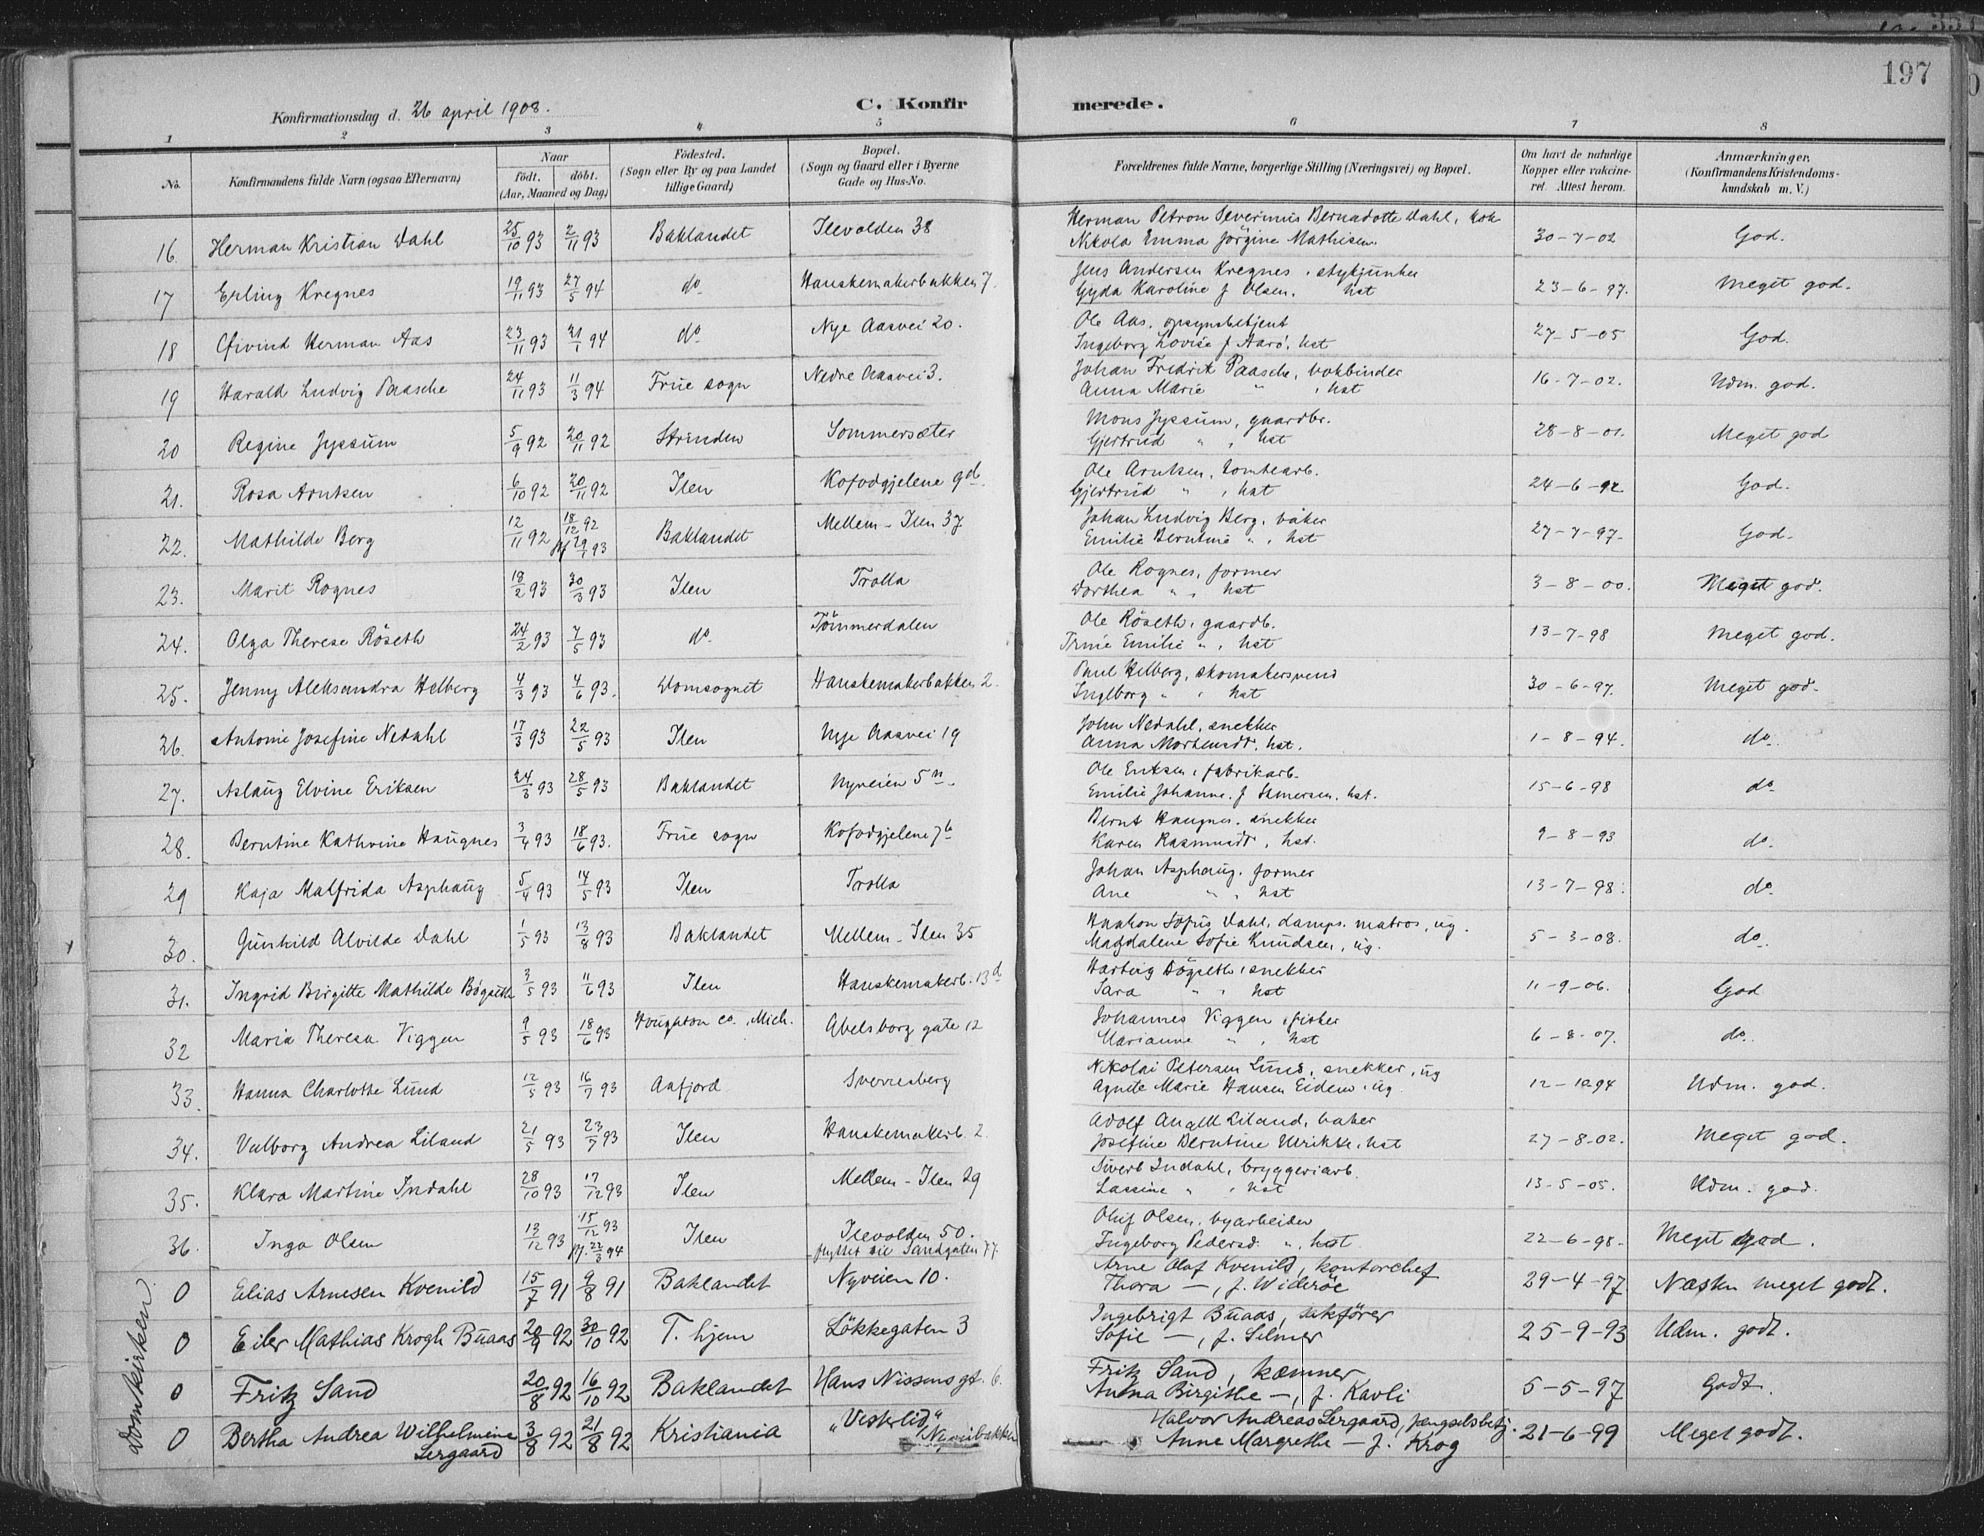 197
Konfirmationsdag d. 26 april 1908.
C. Konfirmerede.
1 2 3 4 5 6 7 8
No. Konfirmandens fulde Navn (ogsaa Efternavn) Naar født. døbt. (Aar, Maaned og Dag) Fødested. (Sogn eller By og paa Landet tillige Gaard) Bopæl. (Sogn og Gaard eller i Byerne Gade og Hus-No. Forældrenes fulde Navne, borgerlige Stilling (Næringsvei) og Bopæl. Om havt de naturlige Kopper eller vakcineret. Attest herom. Anmærkninger. (Konfirmandens Kristendomskundskab m. V.)
16. Herman Kristian Dahl 25/10 93 2/11 93 Baklandet Ilevolden 38 Herman Petron Severinus Bernadotte Dahl, kok
Nikola Emma Jörgine Mathisen 30-7-02 God.
17 Erling Kregnes 19/11 93 27/5 94 do Hanskemakerbakken 7. Jens Andersen Kregnes, stykjunker
Gyda Karoline f Olsen. hst 23-6-97. Meget god.
18 Øivind Herman Aas 23/11 93 21/1 94 do Nye Aasvei 20. Ole Aas, opsynsbetjent
Ingeborg Lovise f Aarö, hst 27-5-05 God.
19 Harald Ludvig Paasche 24/11 93 11/3 94 Frue sogn Nedre Aasvei 3. Johan Fredrik Paasche, bokbinder
Anna Marie " , hst 16-7-02. Udm. god.
20 Regine Jyssum 5/9 92 20/11 92 Strinden Sommersæter Mons Jyssum, gaardbr.
Gjertrud " , hst 28-8-01. Meget god
21. Rosa Arntsen 6/10 92 20/11 92 Ilen Kofodgjelene 9d. Ole Arntsen, tomtearb.
Gjertrud " , hst 24-6-92 God.
22. Mathilde Berg 12/11 92 18/12 92 29/1 93 Baklandet Mellem-Ilen 37 Johan Ludvig Berg, baker
Emilie Berntine " , hst 27-7-97. God.
23. Marit Rognes 18/2 93 30/3 93 Ilen Trolla Ole Rognes, former
Dorthea " , hst 3-8-00. Meget god.
24. Olga Therese Röseth 24/2 93 7/5 93 do. Tömmerdalen Ole Röseth, gaardb.
Trine Emilie " , hst 13-7-98 Meget god.
25. Jenny Aleksandra Helberg 4/3 93 4/6 93. Domsognet Hanskemakerbakken 2. Paul Helberg, skomakersvend
Ingeborg " , hst 30-6-97. Meget god.
26. Antonie Josefine Nedahl 17/3 93 22/5 93 Ilen Nye Aasvei 19 John Nedahl, snekker
Anna Mortensdt. hst. 1-8-94. do.
27. Aslaug Elvine Eriksen 24/3 93 28/5 93 Baklandet Nyveien 5 n. Ole Eriksen, fabrikarb.
Emilie Johanne. f. hst. 15-6-98 do
28. Berntine Kathrine Haugnes 3/4 93 18/6 93. Frue sogn Kofodgjelene 7b Bernt Haugnes. snekker
Karen Rasmusdt, hst. 9-8-93 do.
29 Kaja Malfrida Asphaug 5/4 93 14/5 93 Ilen Trolla Johan Asphaug. former
Ane " , hst 13-7-98. do.
30. Gunhild Alvilde Dahl 1/5 93 13/8 93 Baklandet Mellem-Ilen 35 Haakon Sofus Dahl, damps. matros, ug.
Magdalene Sofie Knudsen, ug. 5-3-08. do.
31. Ingrid Birgitte Mathilde Bøgseth 3/5 93 11/6 93 Ilen Hanskemakerb. 13d Hartvig Bögseth, snekker
Sara " , hst 11-9-06. God
32 Maria Theresa Viggen 9/5 93 18/6 93 Houghton co., Mich. Abelsborg gate 12 Johannes Viggen, fisker
Marianne " , hst 6-8-07. do.
33. Hanna Charlotte Lund 12/5 93 16/7 93 Aafjord Sverresborg Nikolai Petersen Lund, snekker, ug
Agnete Marie Hansen Eidem, ug. 12-12 94 Udm. god.
34. Valborg Andrea Liland 21/5 93 23/7 93 Ilen Hanskemakerb. 2. Adolf Angell Liland, baker
Josefine Berntine Ulrikke, hst 27-8-02. Meget god.
35. Klara Martine Indahl 28/10 93 17/12 93 Ilen Mellem-Ilen 29 Sivert Indahl, bryggeriarb.
Lassine " , hst 13-5-05. Udm. god.
36. Inga Olsen 13/12 93 15/12 93 22/3 94 Ilen Ilevolden 50.
flyttet til Sandgaten 77. Oluf Olsen, byarbeider
Ingeborg Pedersd. " , hst 22-6-98. Meget god.
Domkirken
0 Elias Arnesen Kvenild 15/7 91 9/8 91 Baklandet Nyveien 10. Arne Olaf Kvenild, kontorchef
Thora —, f. Widerøe 29-4-97 Næsten meget godt.
0 Eiler Mathias Krogh Buaas 20/9 92 30/10 92 T. hjem Løkkegaten 3 Ingebrigt Buaas, sakfører
Sofie —, f. Selmer 25-9-93 Udm. godt.
0 Fritz Sand 20/8 92 16/10 92 Baklandet Hans Nissens gt. 6. Fritz Sand, kæmner
Anna Birgithe —, f. Kavli 5-5-97 Godt.
0 Bertha Andrea Wilhelmine Sergaard 3/8 92 21/8 92 Kristiania "Vesterlid" Nyveibakken Halvor Andreas Sergaard, fængselsbetj.
Anne Margrethe — f. Krog 21-6-99 Meget godt.